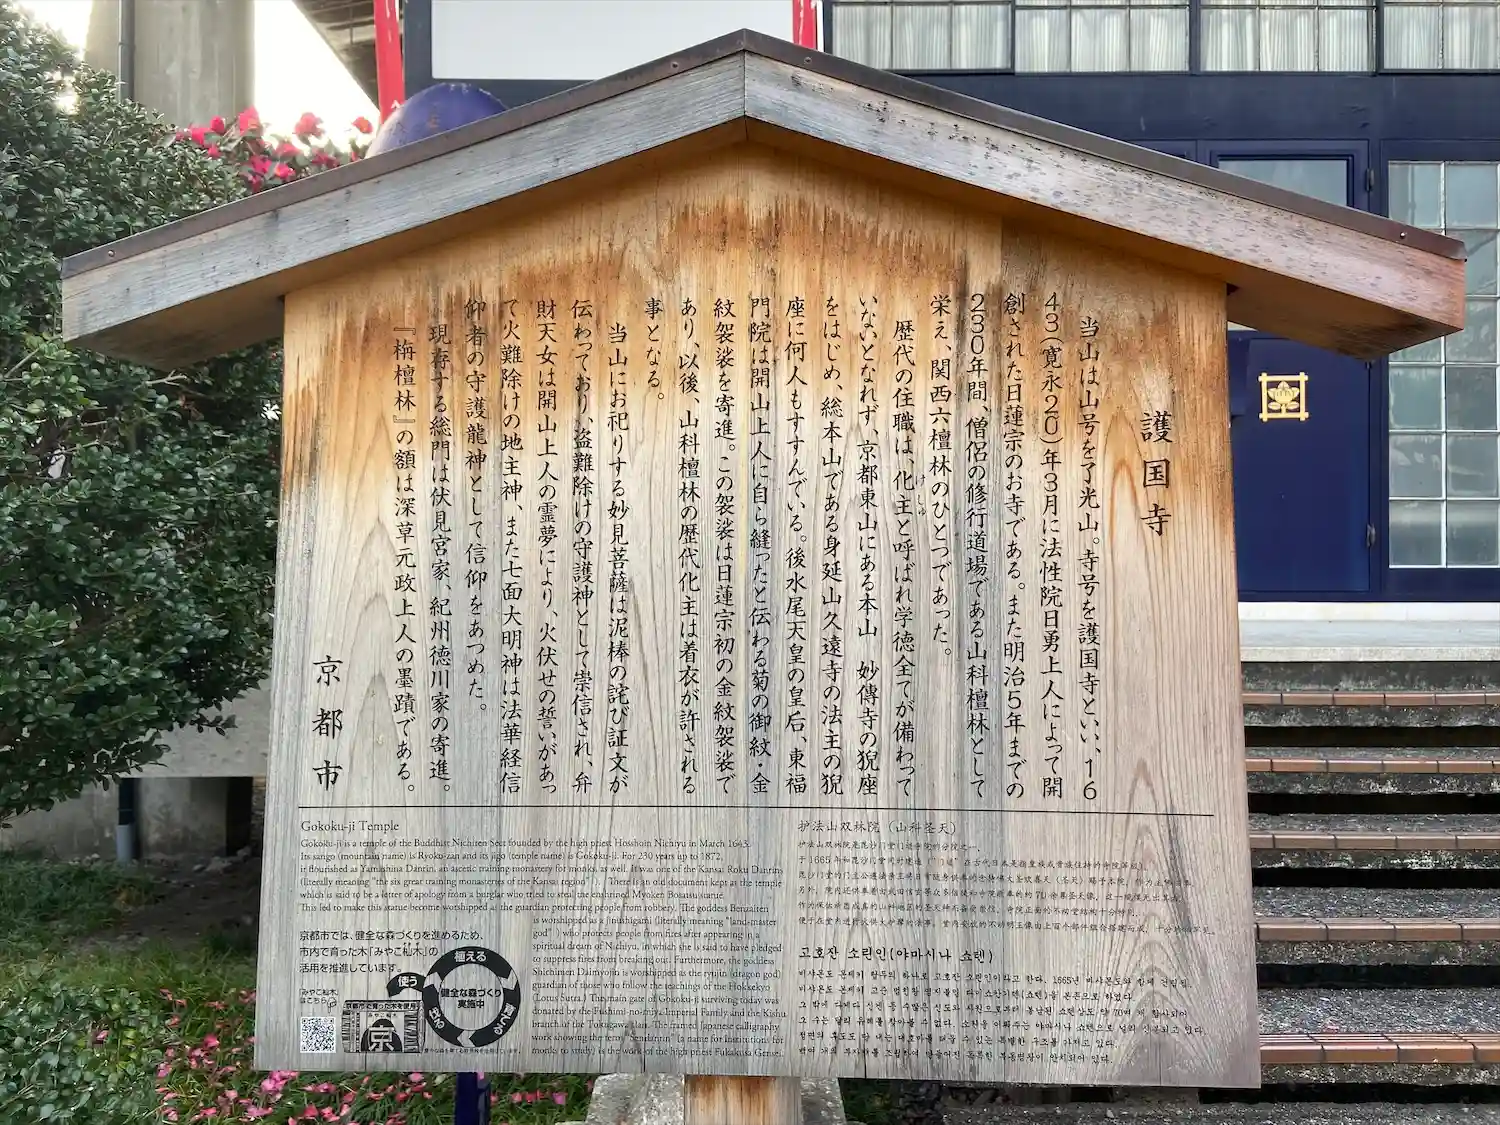 護国寺
当山は山号を了光山。寺号を護国寺といい、16
43(寛永20)年3月に法性院日勇上人によって開
創された日蓮宗のお寺である。また明治5年までの
230年間、僧侶の修行道場である山科檀林として
栄え、関西六檀林のひとつであった。
歴代の住職は、化主と呼ばれ学徳全てが備わって
けしゅ
いないとなれず、京都東山にある本山 妙傳寺の猊座
をはじめ、総本山である身延山久遠寺の法主の猊
座に何人もすすんでいる。後水尾天皇の皇后、東福
門院は開山上人に自ら縫ったと伝わる菊の御紋・金
紋袈裟を寄進。この袈裟は日蓮宗初の金紋袈裟で
あり、以後、山科檀林の歴代化主は着衣が許される
事となる。
当山にお祀りする妙見菩薩は泥棒の詫び証文が
伝わっており、盗難除けの守護神として崇信され、弁
財天女は開山上人の霊夢により、火伏せの誓いがあっ
て火難除けの地主神、また七面大明神は法華経信
仰者の守護龍神として信仰をあつめた。
現存する総門は伏見宮家、紀州徳川家の寄進。
『栴檀林』の額は深草元政上人の墨蹟である。
京都市
Gokoku-ji Temple
Gokoku-ji is a temple of the Buddhist Nichiren Sect founded by the high priest Hosshoin Nichiyu in March 1643.
Its sango (mountain name) is Ryoku-zan and its jigo (temple name) is Gokoku-ji. For 230 years up to 1872,
it flourished as Yamashina Danrin, an ascetic training monastery for monks, as well. It was one of the Kansai Roku Danrins
(literally meaning "the six great training monasteries of the Kansai region"). There is an old document kept at the temple
which is said to be a letter of apology from a burglar who tried to steal the enshrined Myoken Bosatsu statue.
This led to make this statue become worshipped as the guardian protecting people from robbery. The goddess Benzaiten
is worshipped as a Jinushigami (literally meaning "land-master
god") who protects people from fires after appearing in a
spiritual dream of Nichiyu, in which she is said to have pledged
to suppress fires from breaking out. Furthermore, the goddess
Shichimen Daimyojin is worshipped as the ryujin (dragon god)
guardian of those who follow the teachings of the Hokkekyo
(Lotus Sutra.) The main gate of Gokoku-ji surviving today was
donated by the Fushimi-no-miya Imperial Family and the Kishu
branch of the Tokugawa clan. The framed Japanese calligraphy
work showing the term "Sendanrin" (a name for institutions for
monks to study) is the work of the high priest Fukakusa Gensei.
京都市では、健全な森づくりを進めるため、
市内で育った木「みやこ杣木」の
活用を推進しています。
「みやこ杣木」
はこちら
植える
育てる
伐る
使う
健全な森づくり
実施中
京都市で育った木を使用
みやこ杣木
京
护法山双林院（山科圣天）
고호잔 소린인(야마시나 쇼텐)